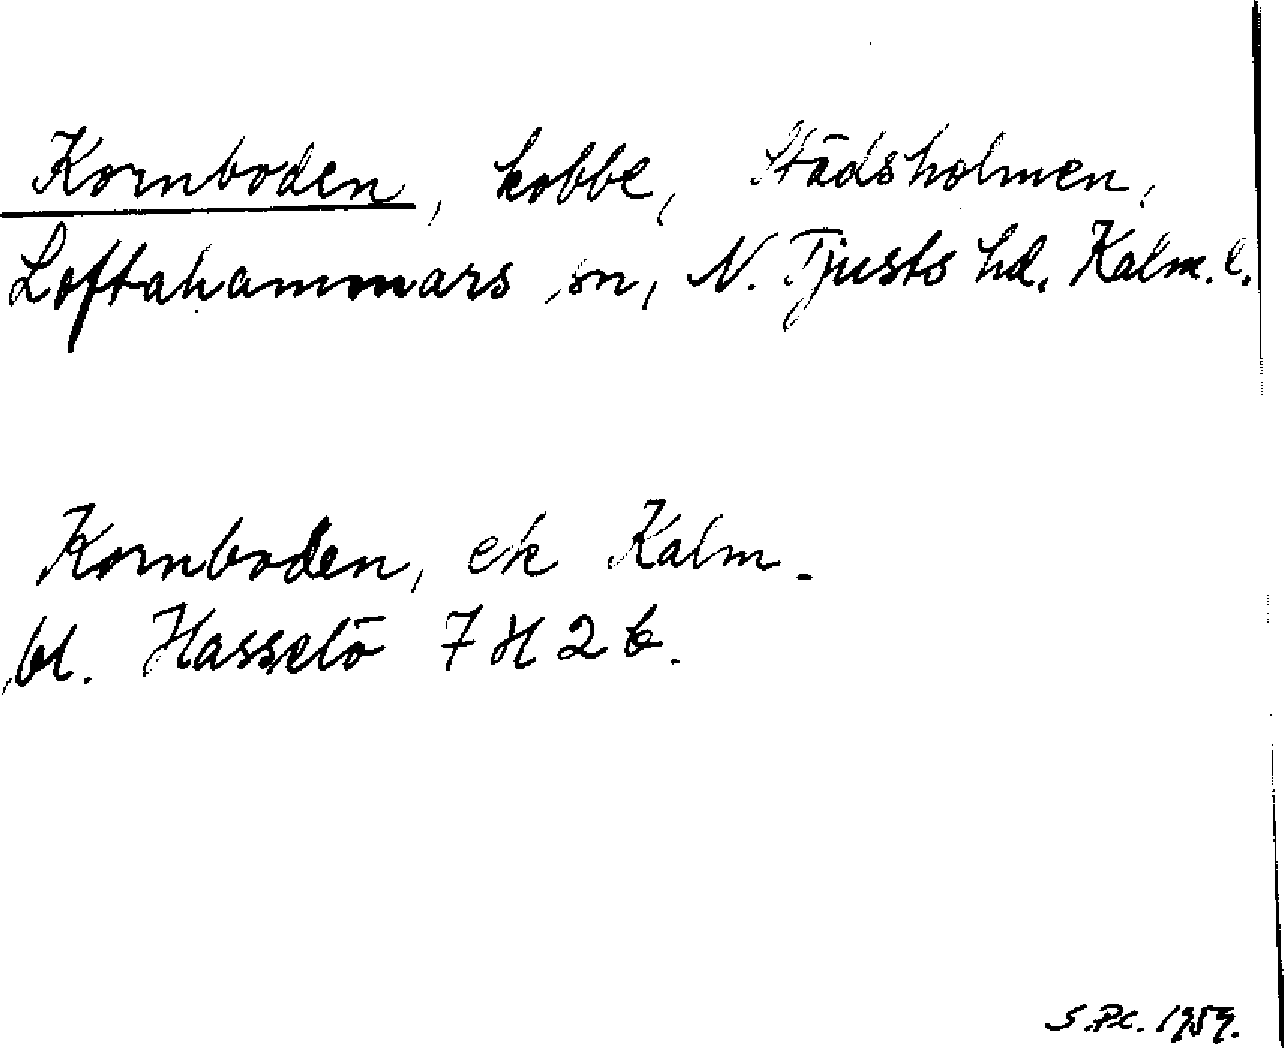 Kornboden, kobbe, Städsholmen,
Loftahammars sn, N. Tjusts hd. Kalm. l.
Kornboden, ek Kalm.
bl. Hasselö 7 H 2 b.
1959.